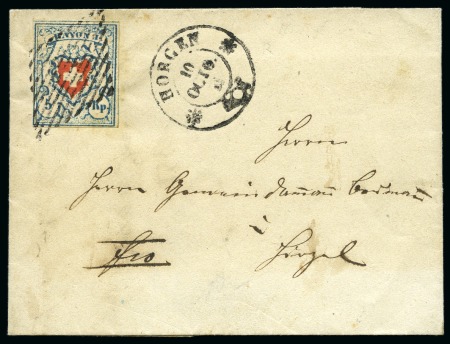 RAYON I
5 Rp.
HORGEN
10
OCTO.
Herrn
Herrn Gemeindammann
à
fco Hirzel